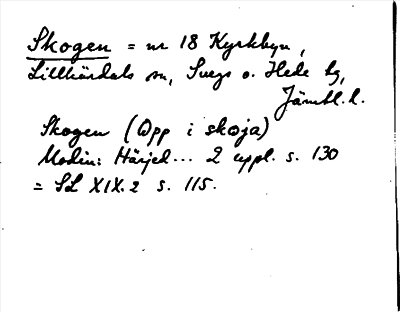 Skogen = nr 18 Kyrkbyn,
Lillhärdals sn, Svegs o. Hede tg,
Jämtl. l.
Skogen (Opp i skoja)
Modin: Härjed... 2 uppl. s. 130
= SL XIX.2 s. 115.